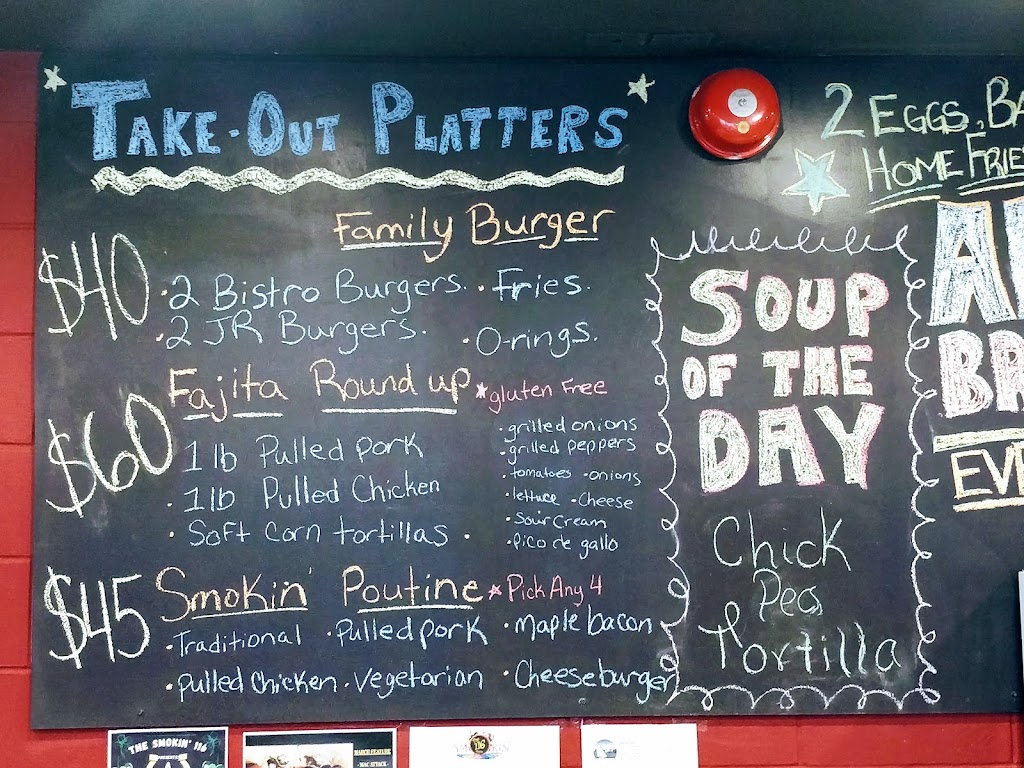 TAKE-OUT PLATTERS
Family Burger
$40
·2 Bistro Burgers. ·Fries.
·2 JR Burgers. ·O-rings.
Fajita Round up *gluten Free
$60
1 lb Pulled pork
·1 lb Pulled Chicken
·Soft corn tortillas·
·grilled onions
·grilled peppers
·tomatoes ·onions
·lettuce ·Cheese
·Sour Cream
·pico de gallo
$45
Smokin' Poutine *Pick Any 4
·Traditional ·Pulled pork ·maple bacon
·pulled chicken ·vegetarian ·Cheeseburger
SOUP
OF THE
DAY
Chick
Pea
Tortilla
2 EGGS, BA
HOME FRIE
BR
EV
THE SMOKIN' 116
MARCH FEATURE
MAC ATTACK